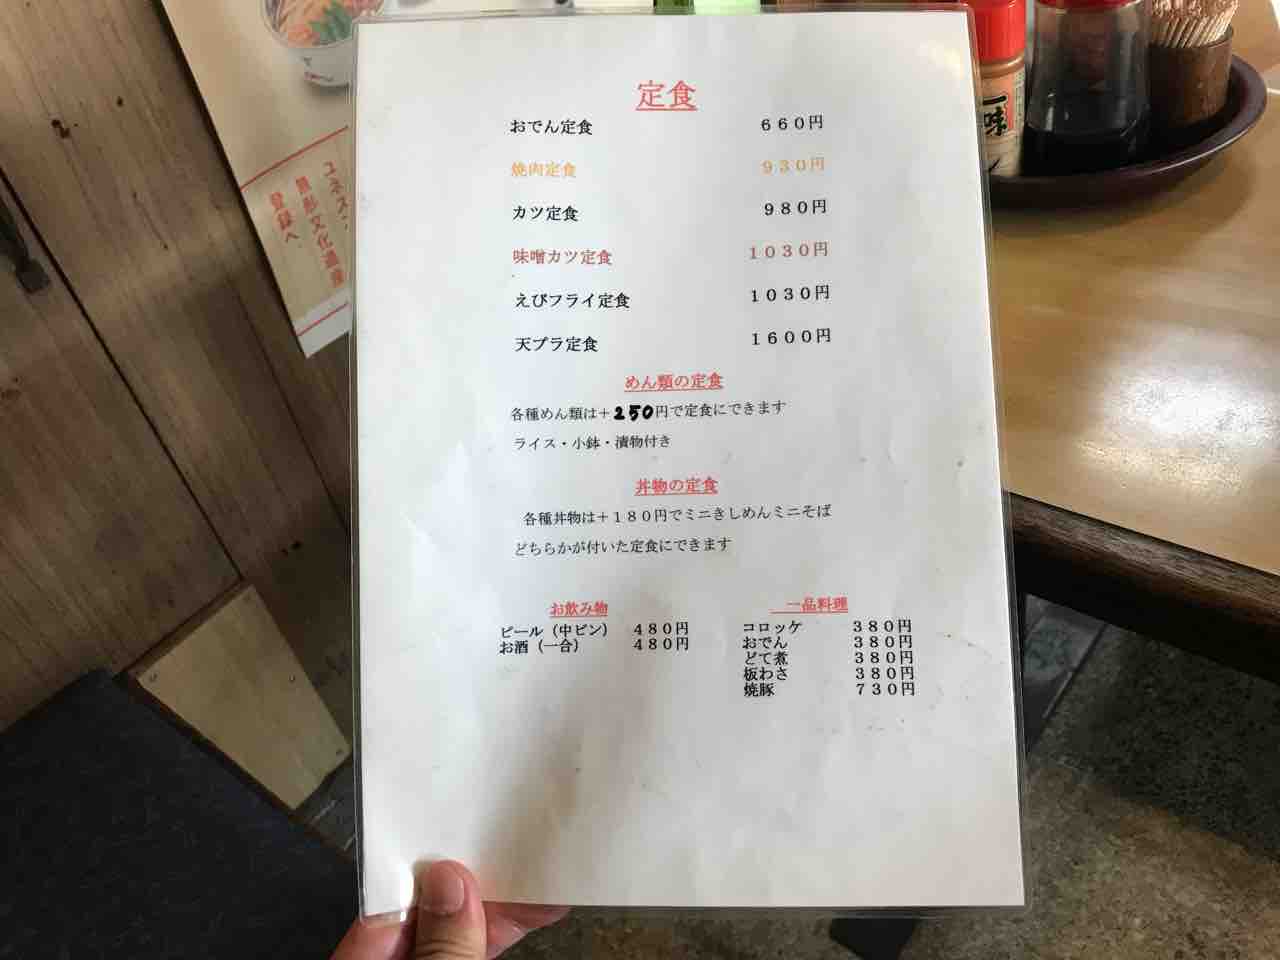 定食
おでん定食 ６６０円
焼肉定食 ９３０円
カツ定食 ９８０円
味噌カツ定食 １０３０円
えびフライ定食 １０３０円
天プラ定食 １６００円
めん類の定食
各種めん類は＋250円で定食にできます
ライス・小鉢・漬物付き
丼物の定食
各種丼物は＋１８０円でミニきしめんミニそば
どちらかが付いた定食にできます
お飲み物
ビール（中ビン） ４８０円
お酒（一合） ４８０円
一品料理
コロッケ ３８０円
おでん ３８０円
どて煮 ３８０円
板わさ ３８０円
焼豚 ７３０円
ユネスコ
無形文化遺産
登録へ
一味